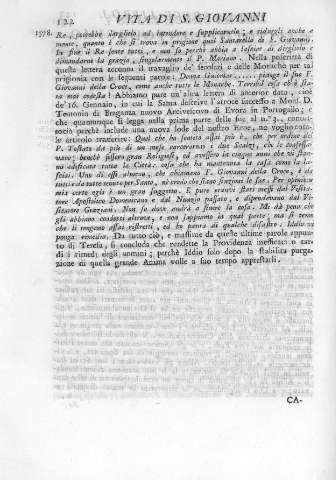 122 VITA DI S. GIOVANNI
1578. Re, potrebbe dargliela ad intendere e supplicarnelo; e ridargli anche a
mente, quanto è che si trova in prigione quel Santarello di F. Giovanni.
In fine il Re sente tutti, e non so perchè abbia a lasciar di dirglielo e
dimandarne la grazia, singolarmente il P. Mariano. Nella poscritta di
questa lettera accenna il travaglio de' secolari, e delle Monache per tal
prigionia con le seguenti parole: Donna Guiomar..... piange il suo F.
Giovanni della Croce, come anche tutte le Monache. Terribil cosa è sta-
ta mai codesta! Abbiamo pure un'altra lettera di anterior data, cioè
de' 16. Gennaio, in cui la Santa descrive l'atroce successo a Mons. D.
Teutonio di Braganza nuovo Arcivescovo di Evora in Portogallo; e
che quantunque si legga nella prima parte delle sue al n.° 3., concios-
sociè perchè include una nuova lode del nostro Eroe, ne voglio
le articolo trascrivere: Quel che ho sentito assai più è, che per ordine del
P. Tostado da più di un mese carcerarono i due Scalzi, che le confessa-
vano; benchè fussero gran Religiosi, ed avessero in cinque anni che vi stan-
no edificata tutta la Città, cosa che ha mantenuta la casa come la la-
sciai. Uno di essi almeno, che chiamano F. Giovanni della Croce, è da
tutti e da tutte tenuto per Santo, nè credo che siano finzioni le sue. Per opinione
mia certo egli è un gran soggetto. E pure erano ivi stati messi dal Visita-
tore Apostolico Domenicano e dal Nunzio passato, e dipendevano dal Vi-
sitatore Graziani. Non so dove andrà a finire la cosa. Mi dà pena che
gli abbiano condotti altrove, e non sappiamo in qual parte; ma si teme
che li tengono assai ristretti, ed ho paura di qualche disastro. Iddio vi
ponga rimedio. Da tutto ciò, e massime da queste ultime parole appun-
to di Teresa, si conclude che rendette la Providenza inefficaci o tar-
di i rimedj degli uomini; perchè Iddio solo dopo la stabilita purga-
zione di quella grande Anima volle a suo tempo apprestarli.
CA-